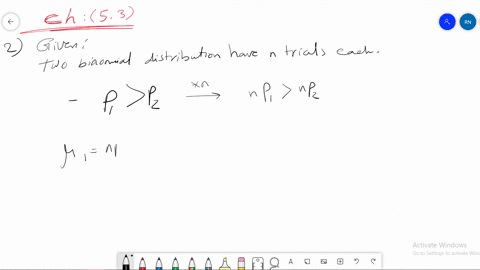 ch:(5.3)
2) Given:
Two binomial distribution have n trials each.
- P₁ > P₂ ×n → nP₁ > nP₂
μ₁ = n
Activate Windows
Go to Settings to activate Windows.
RN
A